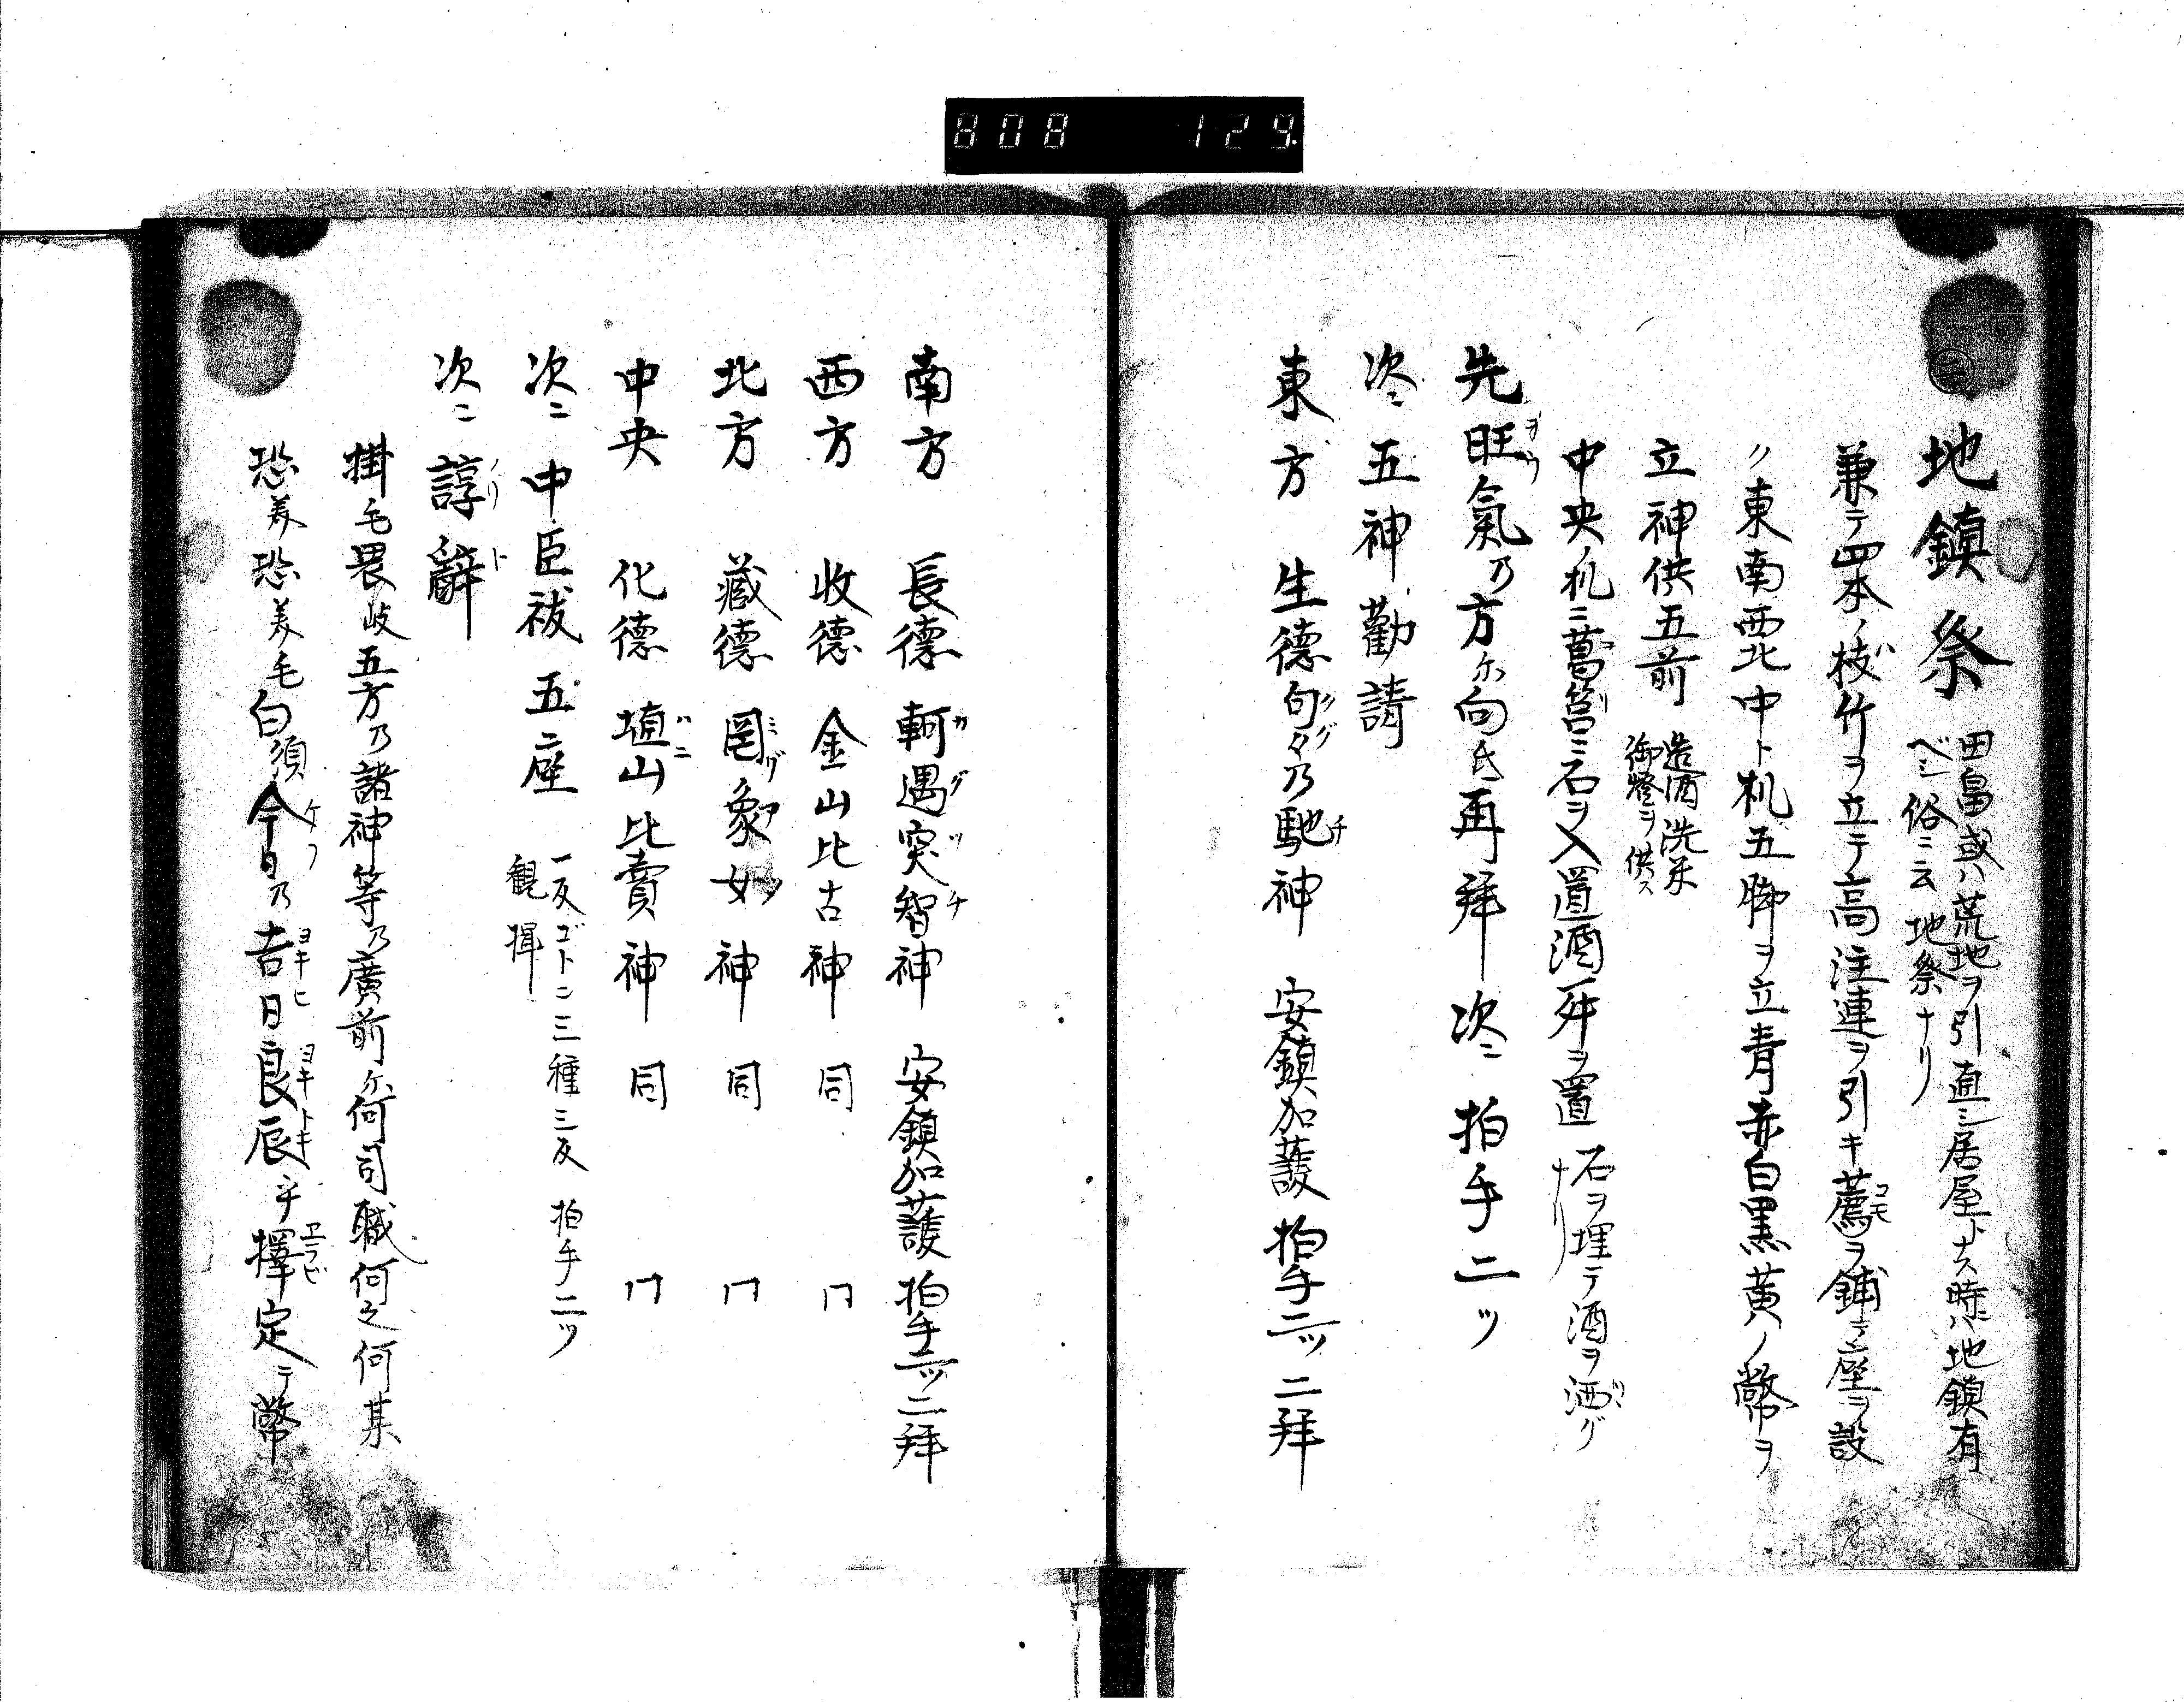 808 129
㊁
地鎮祭 田畠或ハ荒地ヲ引直シ居屋トナス時ハ地鎮有
ベシ俗ニ云地祭ナリ
兼テ四本ノ枝竹ヲ立テ高注連ヲ引キ薦ヲ鋪テ座ヲ設
ク東南西北中ト机五脚ヲ立青赤白黒黄ノ幣ヲ
立神供五前 造酒洗米
御燈ヲ供ス
中央ノ机ニ葛筥ニ石ヲ入置酒一舛ヲ置 石ヲ埋テ酒ヲ洒グ
ナリ
先旺氣乃方尓向氐再拜次ニ拍手二ツ
次ニ五神勸請
東方 生德句々乃馳神 安鎮加護 拍手二ツ二拜
南方 長德軻遇突智神 安鎮加護 拍手二ツ二拜
西方 收德金山比古神 同 仝
北方 藏德罔象女神 同 仝
中央 化德埴山比賣神 同 仝
次ニ中臣祓五座 一反ゴトニ三種三反 拍手二ツ
觀揖
次ニ諄辭
掛毛畏岐五方乃諸神等乃廣前尓何司職何之何某
恐美恐美毛白須今日乃吉日良辰乎擇定テ幣